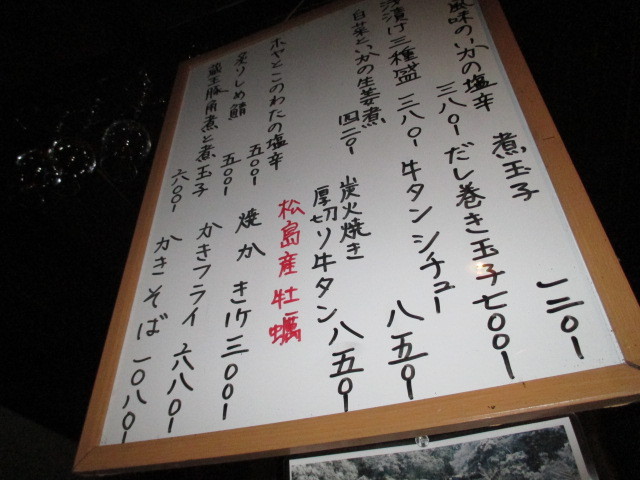 風味のいかの塩辛 三八〇ー
浅漬け三種盛 三八〇ー
白菜といかの生姜煮 四二〇ー
ホヤとこのわたの塩辛 五〇〇ー
炙りしめ鯖 五〇〇ー
蔵王豚角煮と煮玉子 六〇〇ー
煮玉子 一二〇ー
だし巻き玉子 七〇〇ー
牛タンシチュー 八五〇ー
炭火焼き
厚切り牛タン 八五〇ー
松島産牡蠣
焼かき 1ケ 三〇〇ー
かきフライ 六八〇ー
かきそば 一〇八〇ー